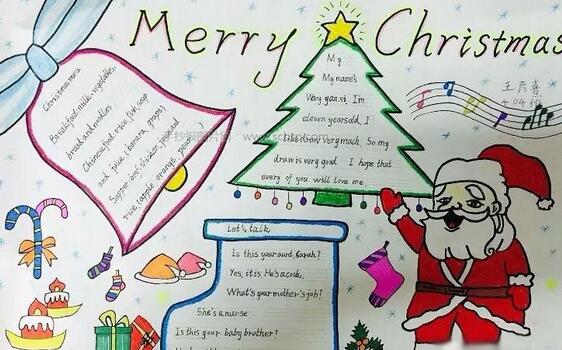 Merry Christmas
Christmas menu
Breakfast: milk, vegetables,
bread and noodles
Chinese food: rice, fish, soup
and juice (banana, grapes)
Supper: beef, chicken,
rice (apple, orange,
My
My name's
Wang yaxi, I'm
eleven years old, I
like draw very much, So my
draw is very good I hope that
every of you will love me.
404班
Let's talk,
Is this your aunt, Sarah?
Yes, it is. He's a cook,
What's your mother's job?
She's a nurse
Is this your baby brother?